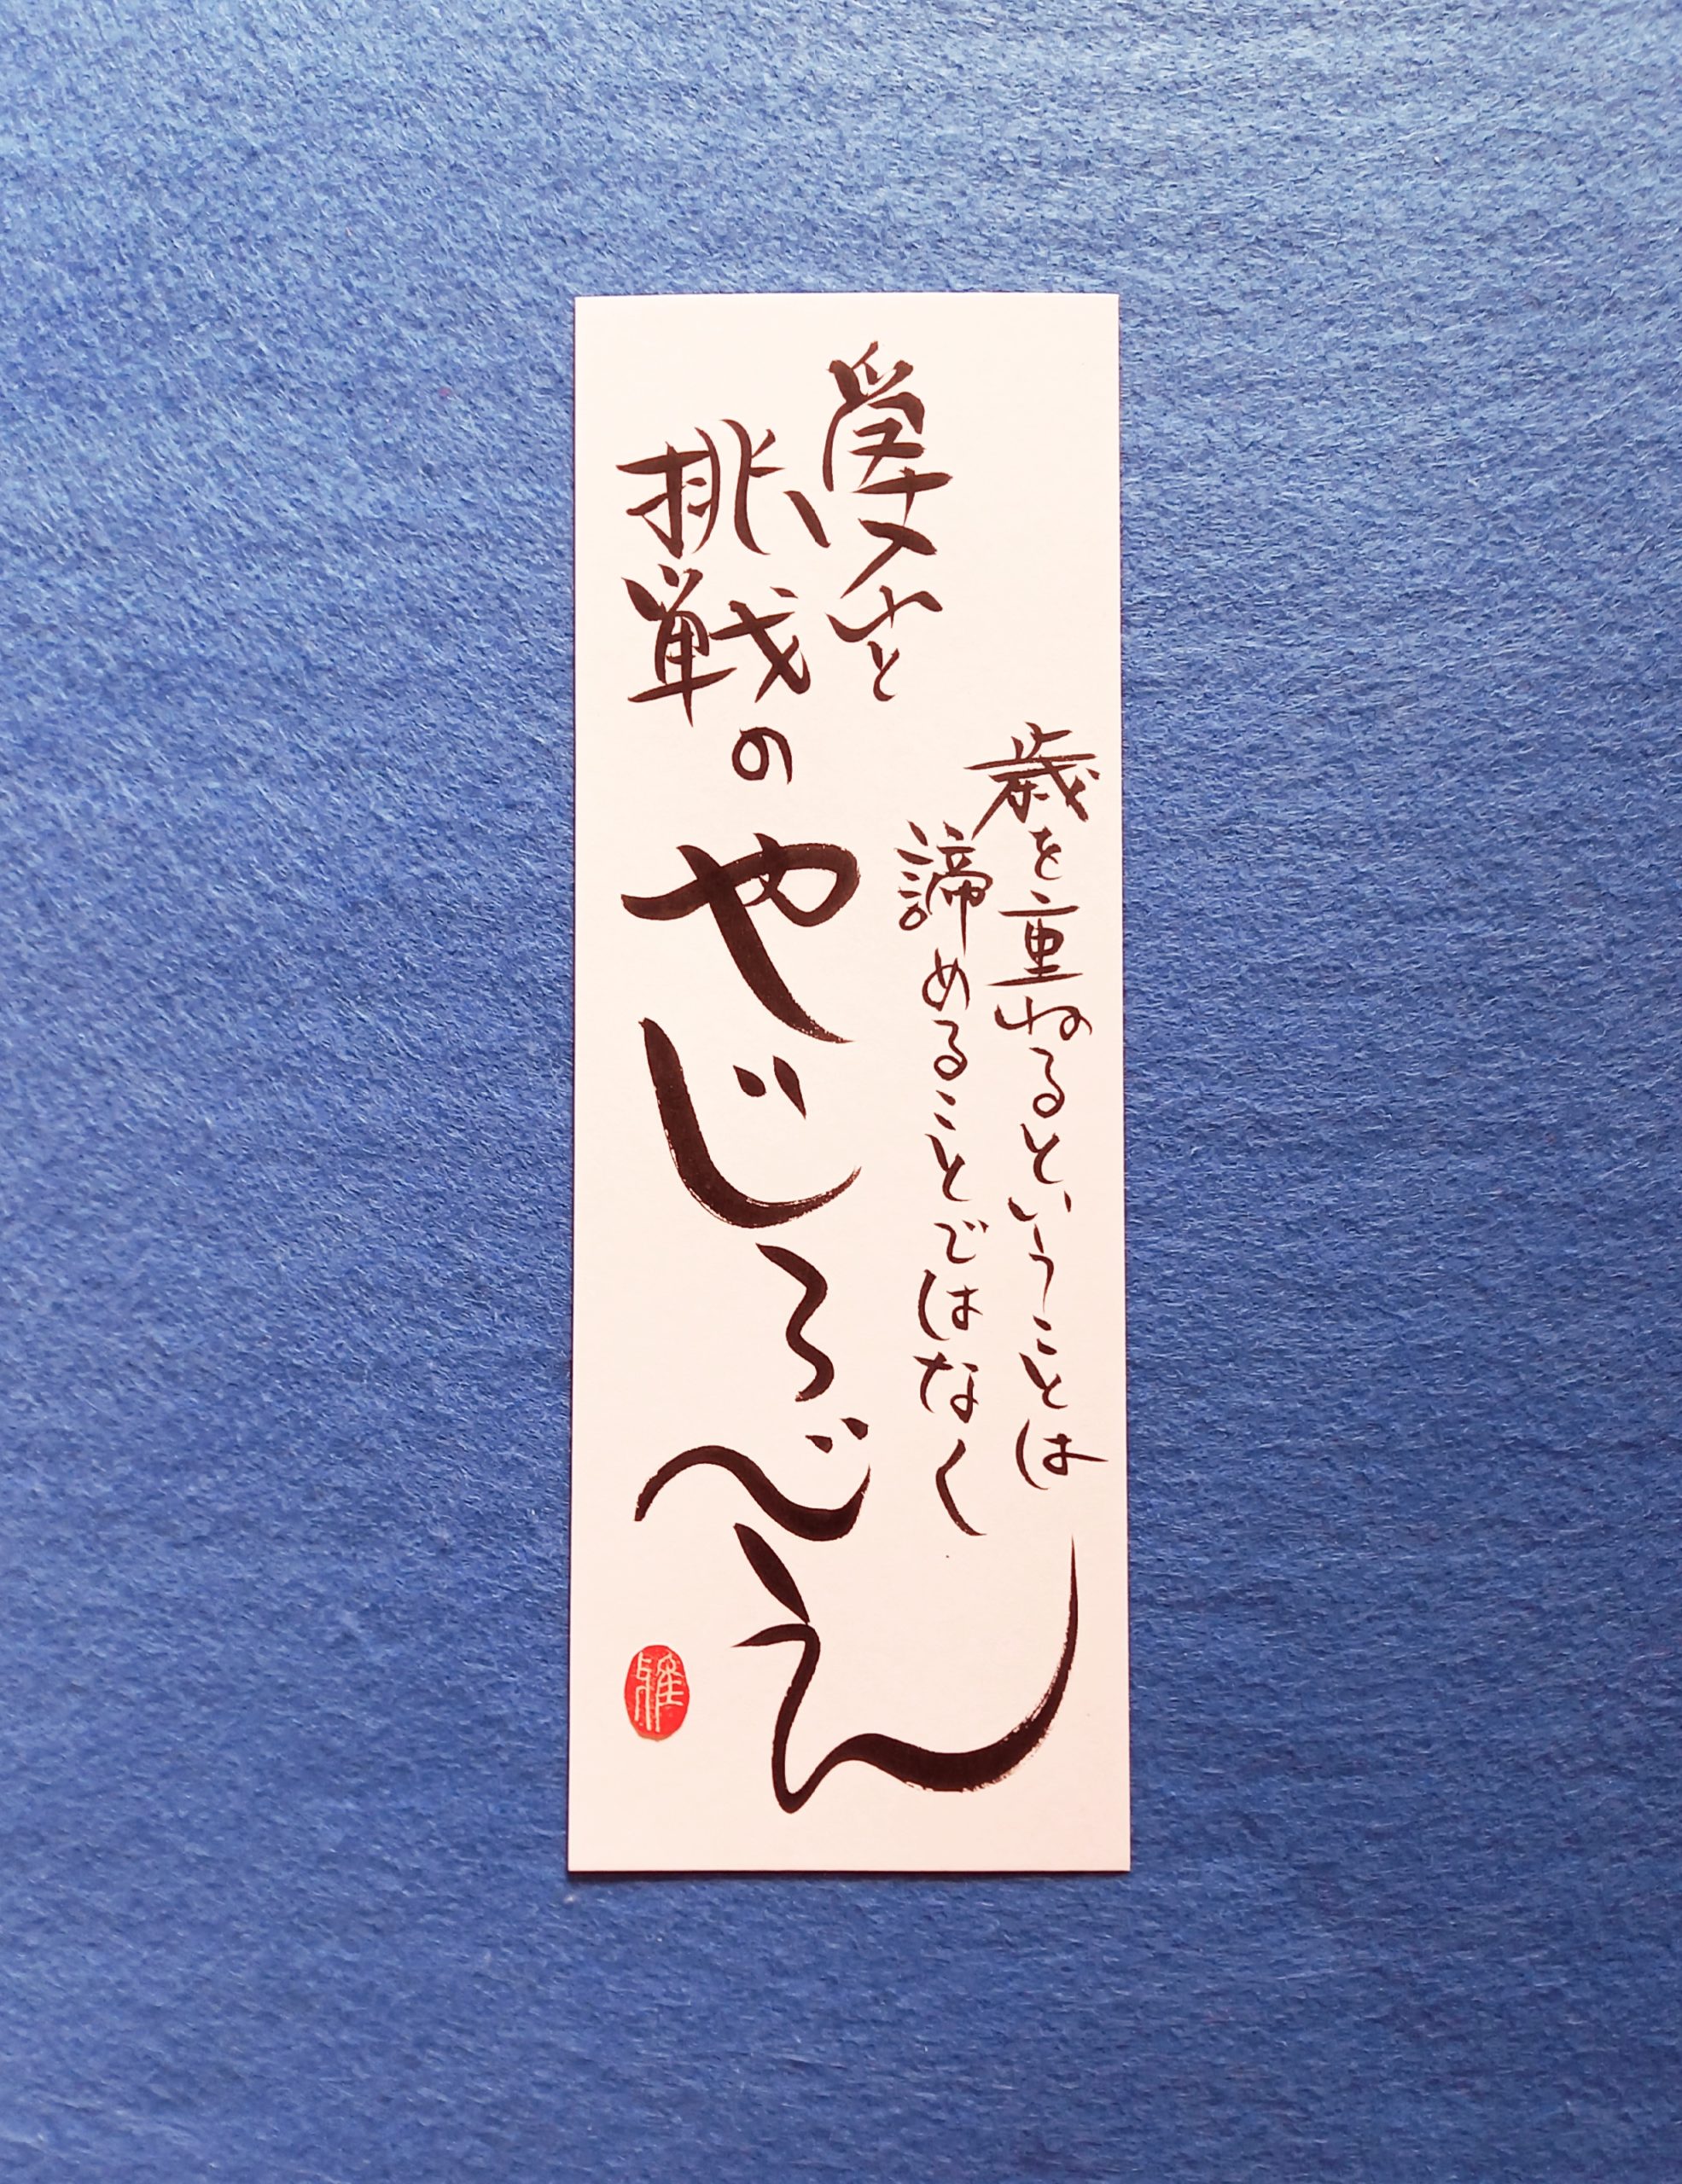 歳を重ねるということは
諦めることではなく
と
挑戦の
やじろべえ
雅